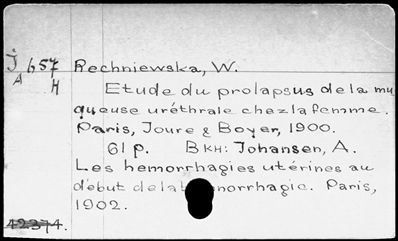 J 657 Rechniewska, W.
A H
Etude du prolapsus de la mu
queuse uréthrale chez la femme.
Paris, Joure & Boyer, 1900.
61 p. Bkн: Johansen, A.
Les hemorrhagies utérines au
début de la norrhagie. Paris,
1902.
42374.